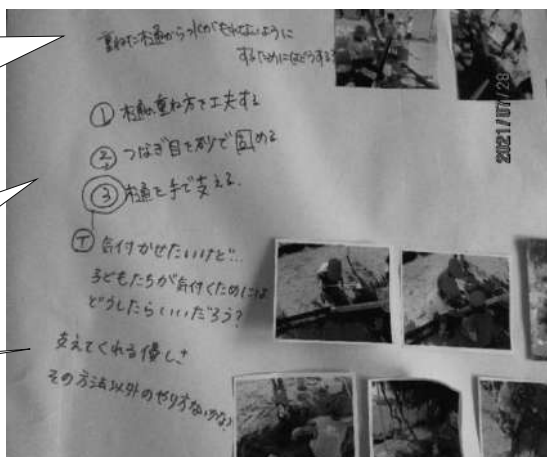 重ねた樋から水がもれないように
するためにはどうする?
① 樋の重ね方を工夫する
② つなぎ目を砂で固める
③ 樋を手で支える。
Ⓣ 気付かせたいけど…
子どもたちが気付くためには
どうしたらいいだろう?
支えてくれる優しさ
その方法以外のやり方ないかな?
2021/07/28